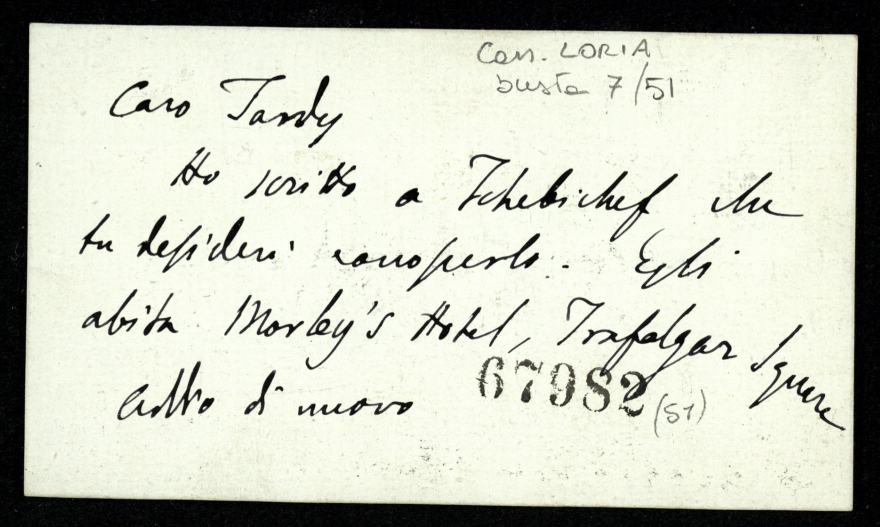 Cass. LORIA
busta 7/51
Caro Tardy
Ho scritto a Tchebichef che
tu desideri conoscerlo. Egli
abita Morley's Hotel, Trafalgar Square
di nuovo
67982 (51)